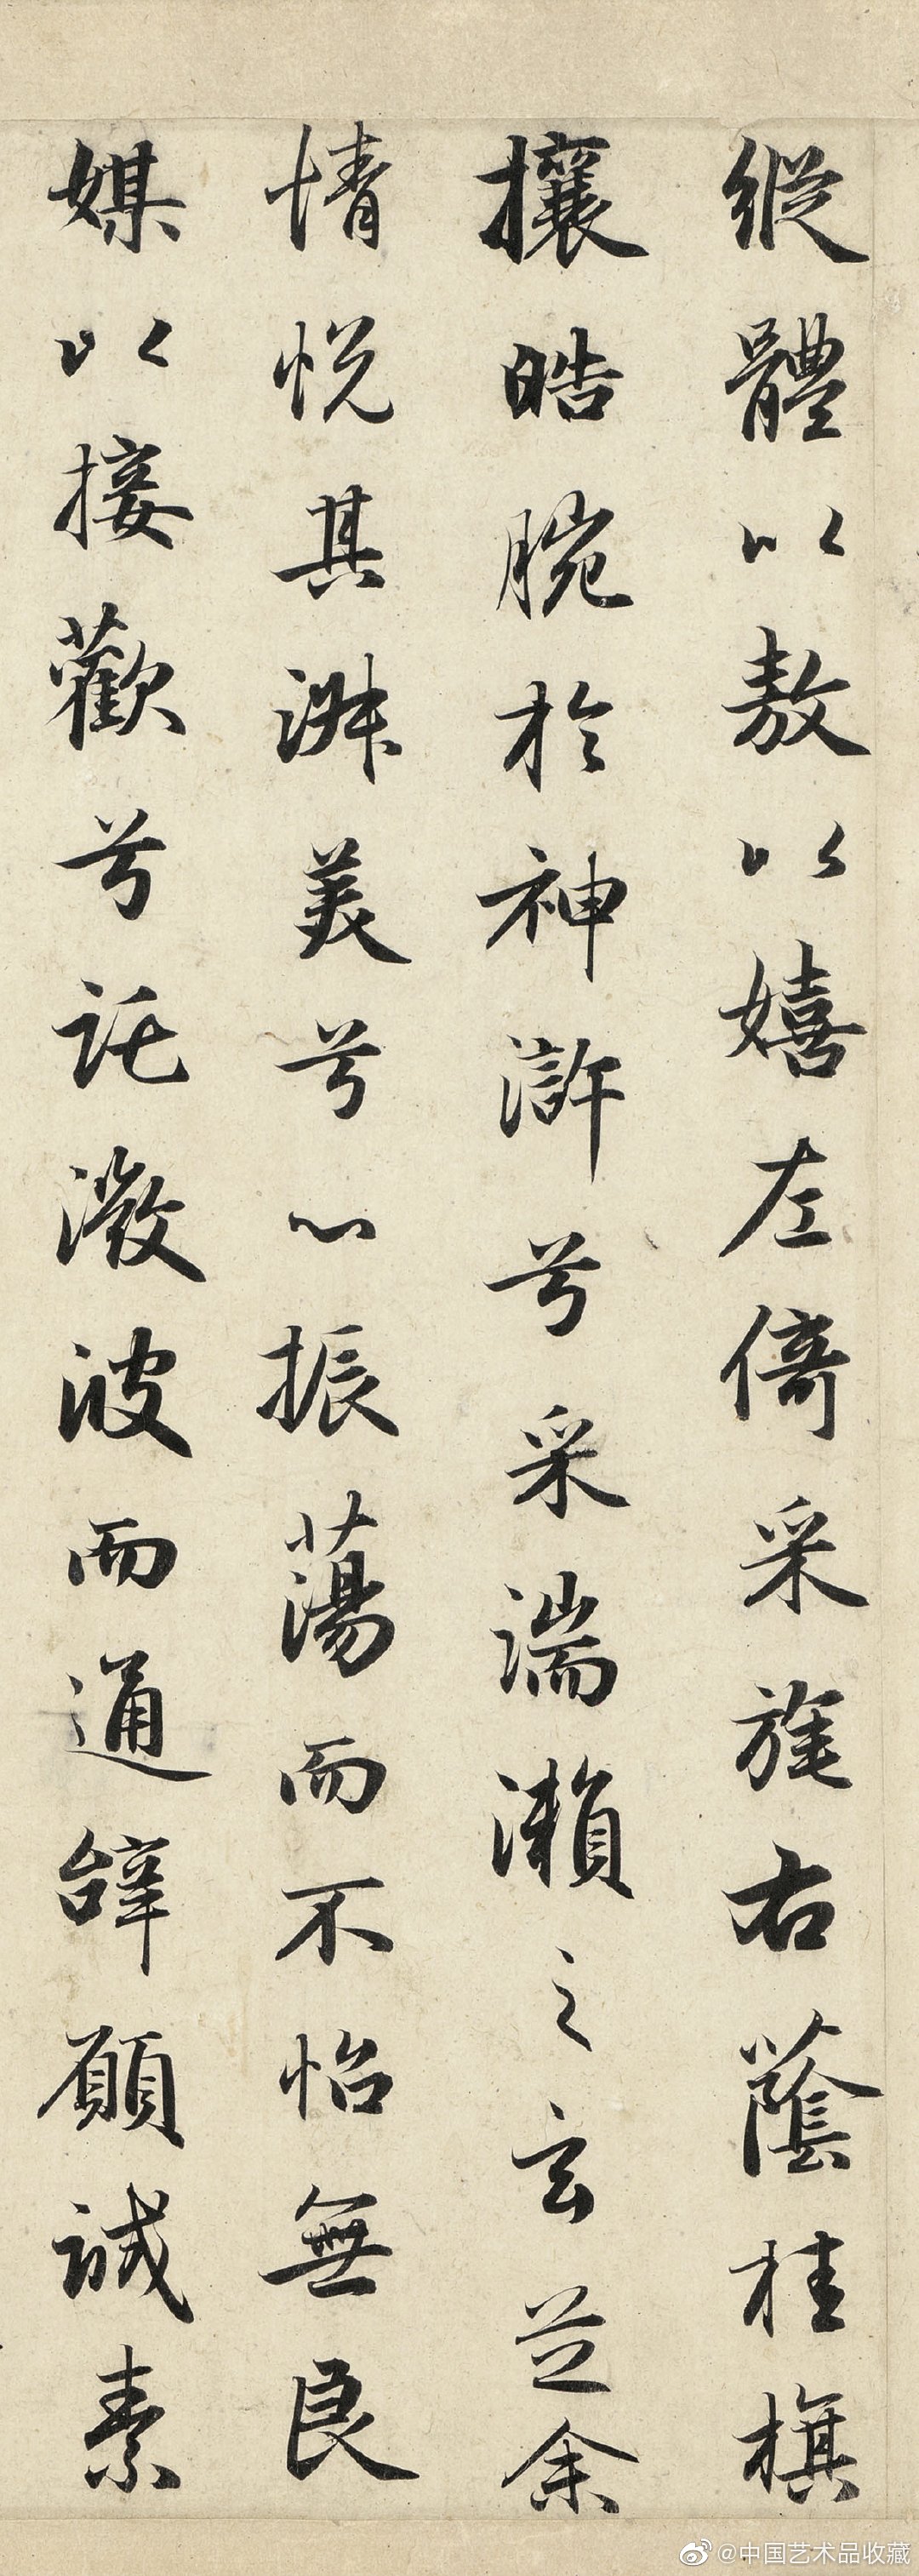 縱體以敖以嬉左倚采旄右蔭桂旗
攘皓腕於神滸兮采湍瀨之玄芝余
情悅其淑美兮心振蕩而不怡無良
媒以接歡兮託微波而通辭願誠素
@中国艺术品收藏